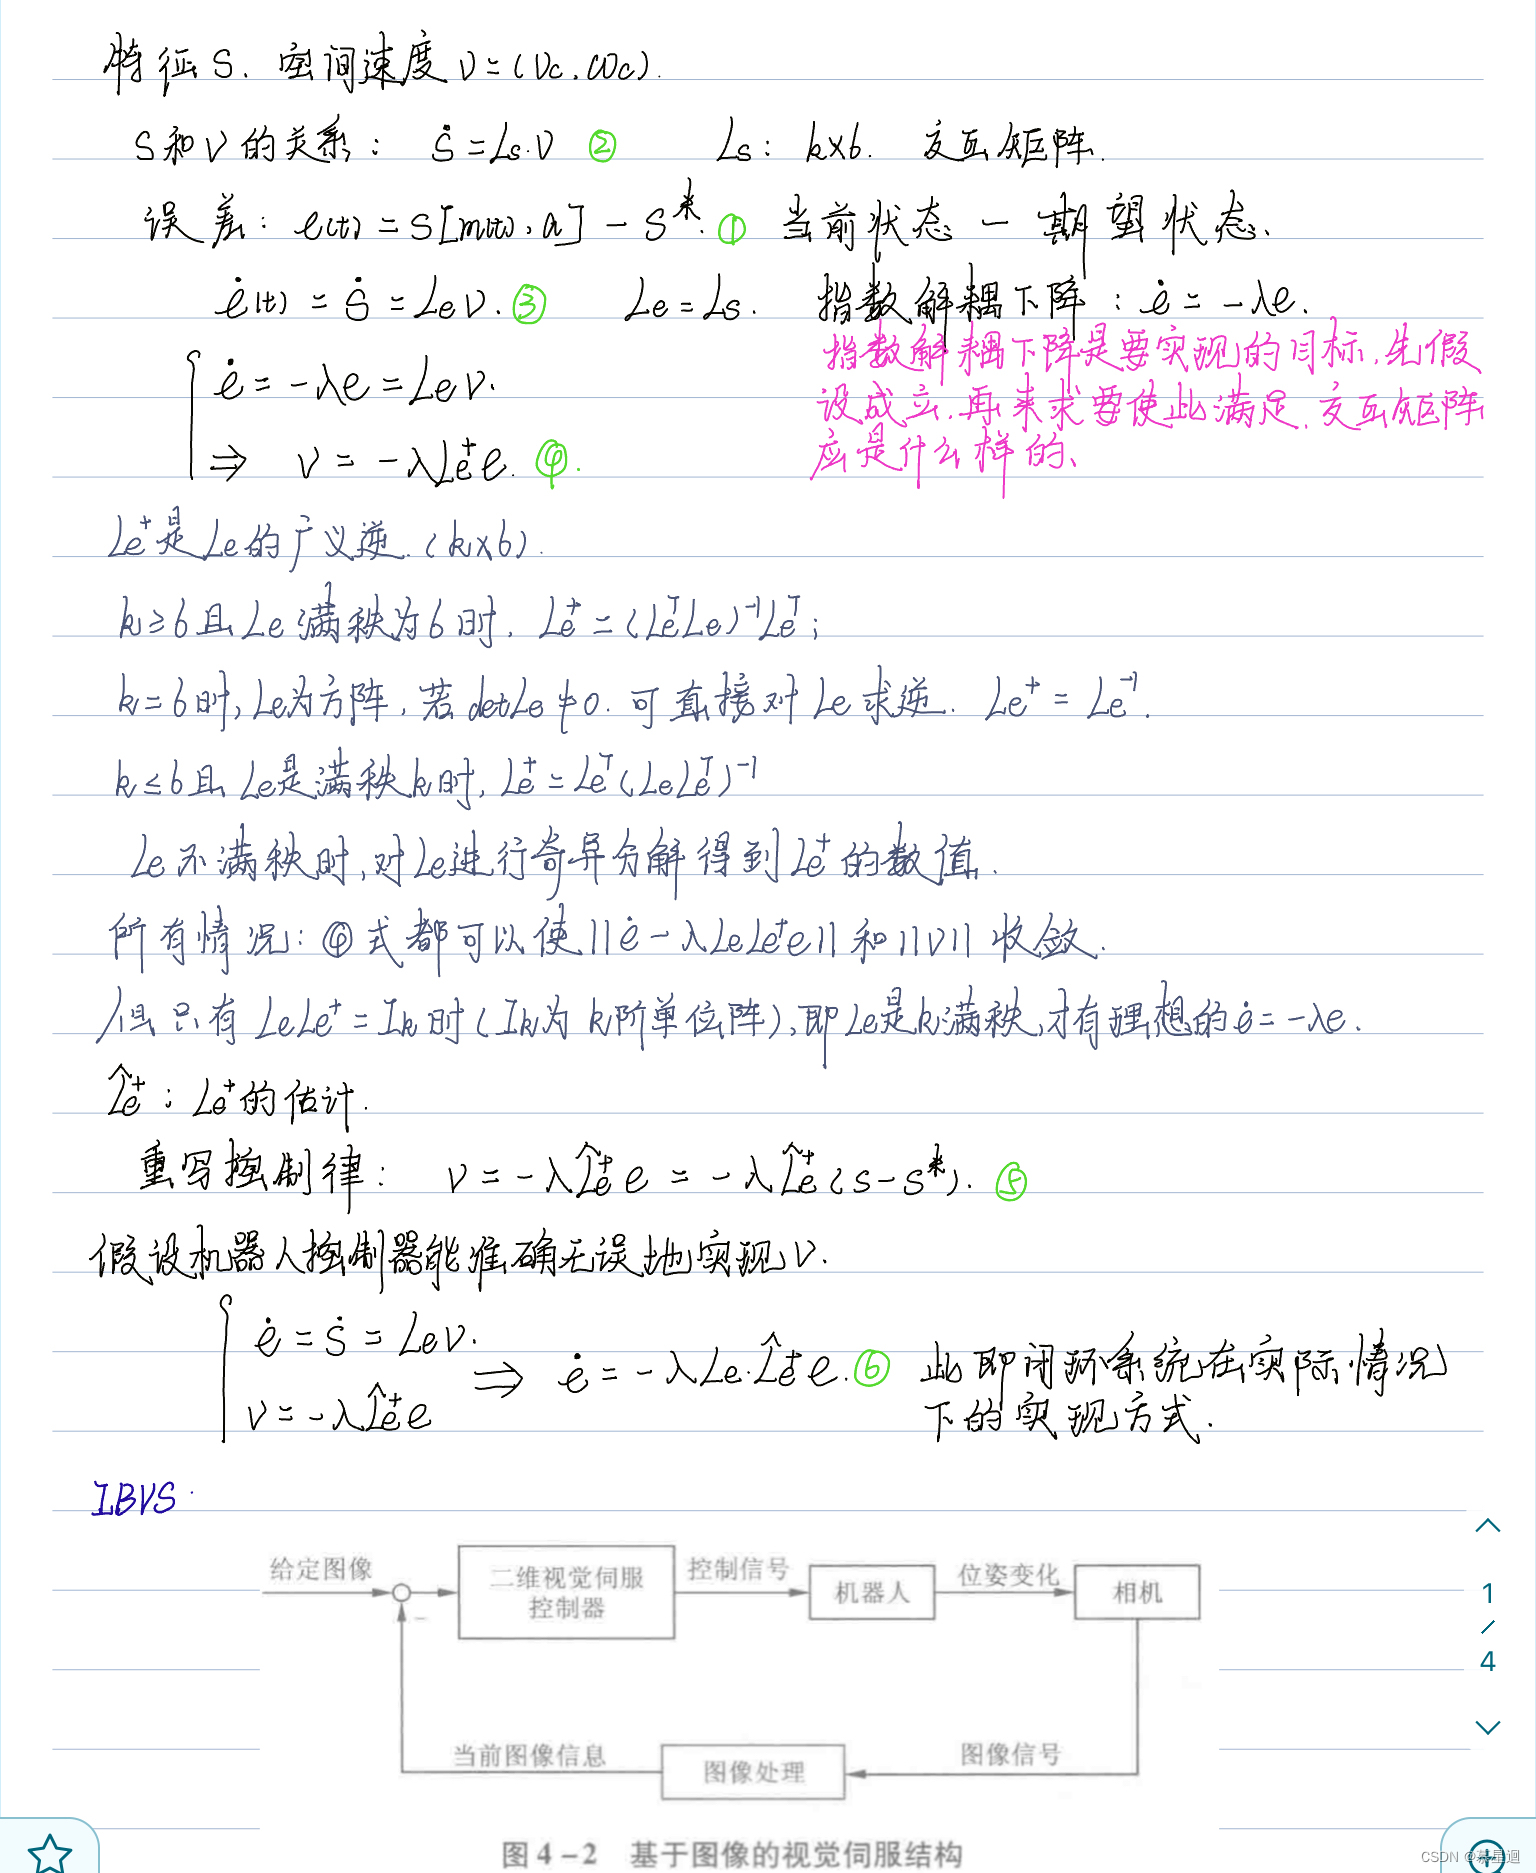 特征S. 空间速度 ν=(νc, ωc).
S和ν的关系: ṡ=Ls·ν ② Ls: k×6. 交互矩阵.
误差: e(t) = S[m(t), a] - S* ① 当前状态 - 期望状态.
ė(t) = ṡ = Leν. ③ Le = Ls. 指数解耦下降: ė = -λe.
指数解耦下降是要实现的目标, 先假
设成立, 再来求要使此满足, 交互矩阵
应是什么样的、
{ ė = -λe = Leν.
⇒ ν = -λLe⁺e. ④.
Le⁺是Le的广义逆.(k×6).
k≥6且Le满秩为6时, Le⁺=(LeᵀLe)⁻¹Leᵀ;
k=6时, Le为方阵, 若detLe≠0. 可直接对Le求逆. Le⁺ = Le⁻¹.
k≤6且Le是满秩k时, Le⁺=Leᵀ(LeLeᵀ)⁻¹
Le不满秩时, 对Le进行奇异分解得到Le⁺的数值.
所有情况: ④式都可以使||ė-λLeLe⁺e||和||ν||收敛.
但只有LeLe⁺=Ik时(Ik为k阶单位阵), 即Le是k满秩, 才有理想的ė=-λe.
L̂e⁺: Le⁺的估计.
重写控制律: ν=-λL̂e⁺e = -λL̂e⁺(s-s*). ⑤
假设机器人控制器能准确无误地实现ν.
{ ė = ṡ = Leν.
⇒ ė = -λLe·L̂e⁺e. ⑥ 此即闭环系统在实际情况
ν=-λL̂e⁺e
下的实现方式.
IBVS
给定图像
二维视觉伺服
控制器
控制信号
机器人
位姿变化
相机
−
当前图像信息
图像处理
图像信号
图 4-2 基于图像的视觉伺服结构
1
/
4
CSDN @慕星迴